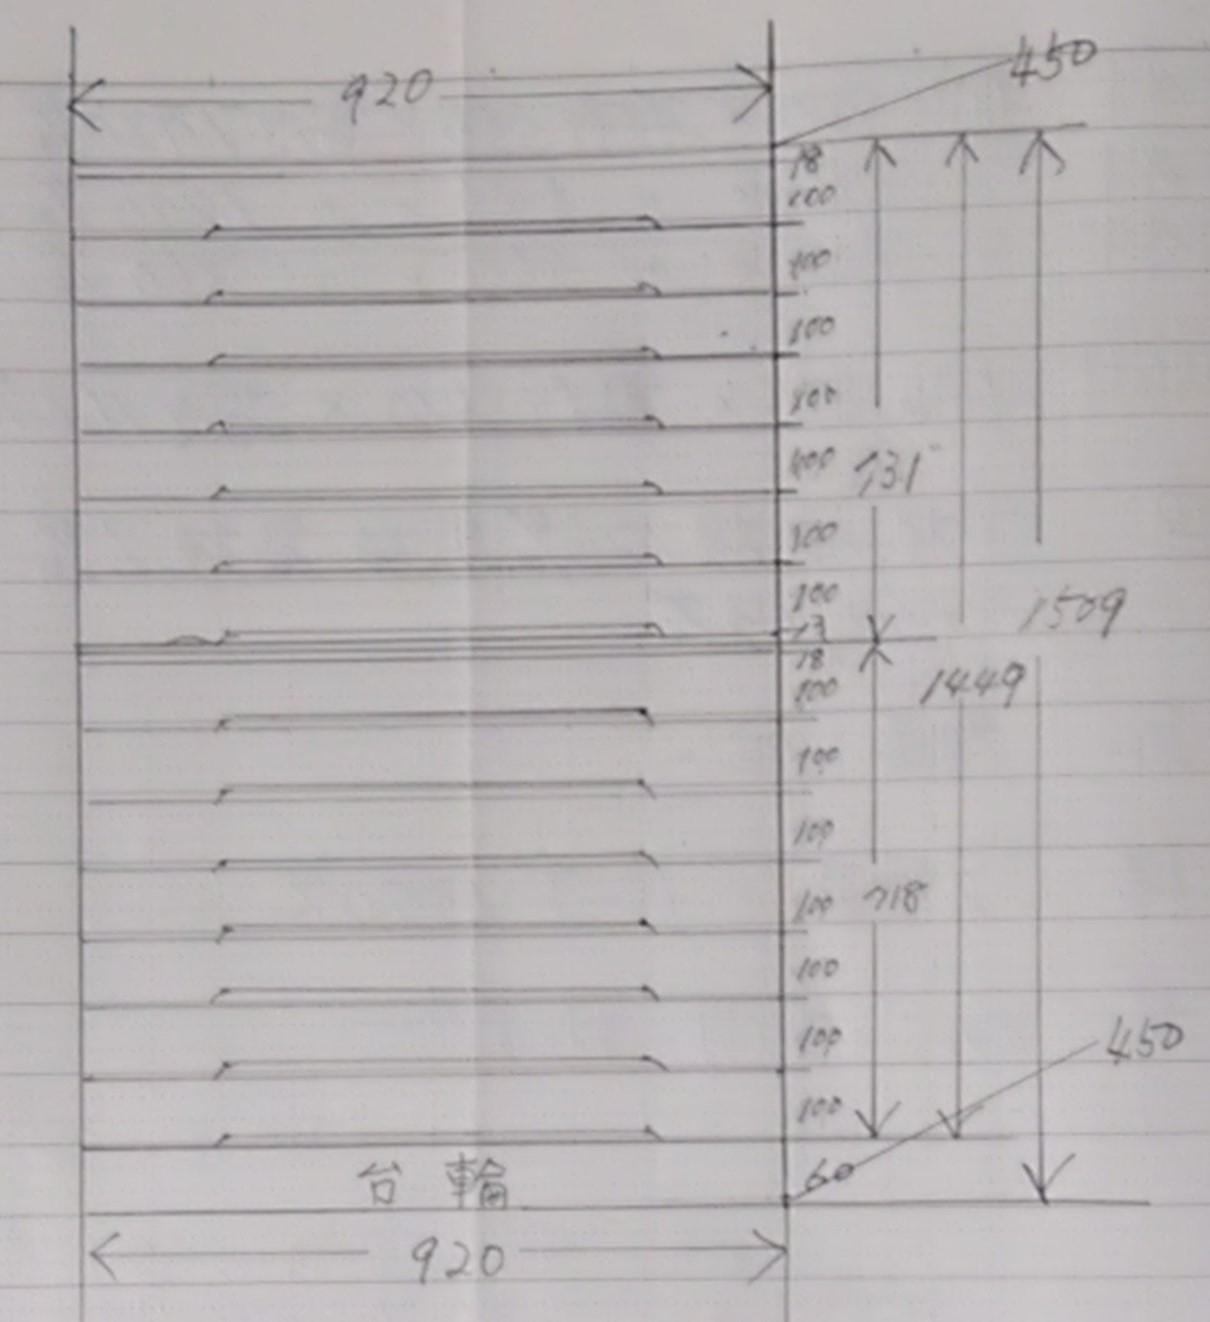 920
450
18
100
100
100
100
100
100
100
13
731
1509
18
100
1449
100
100
100
718
100
100
450
100
60
台輪
920